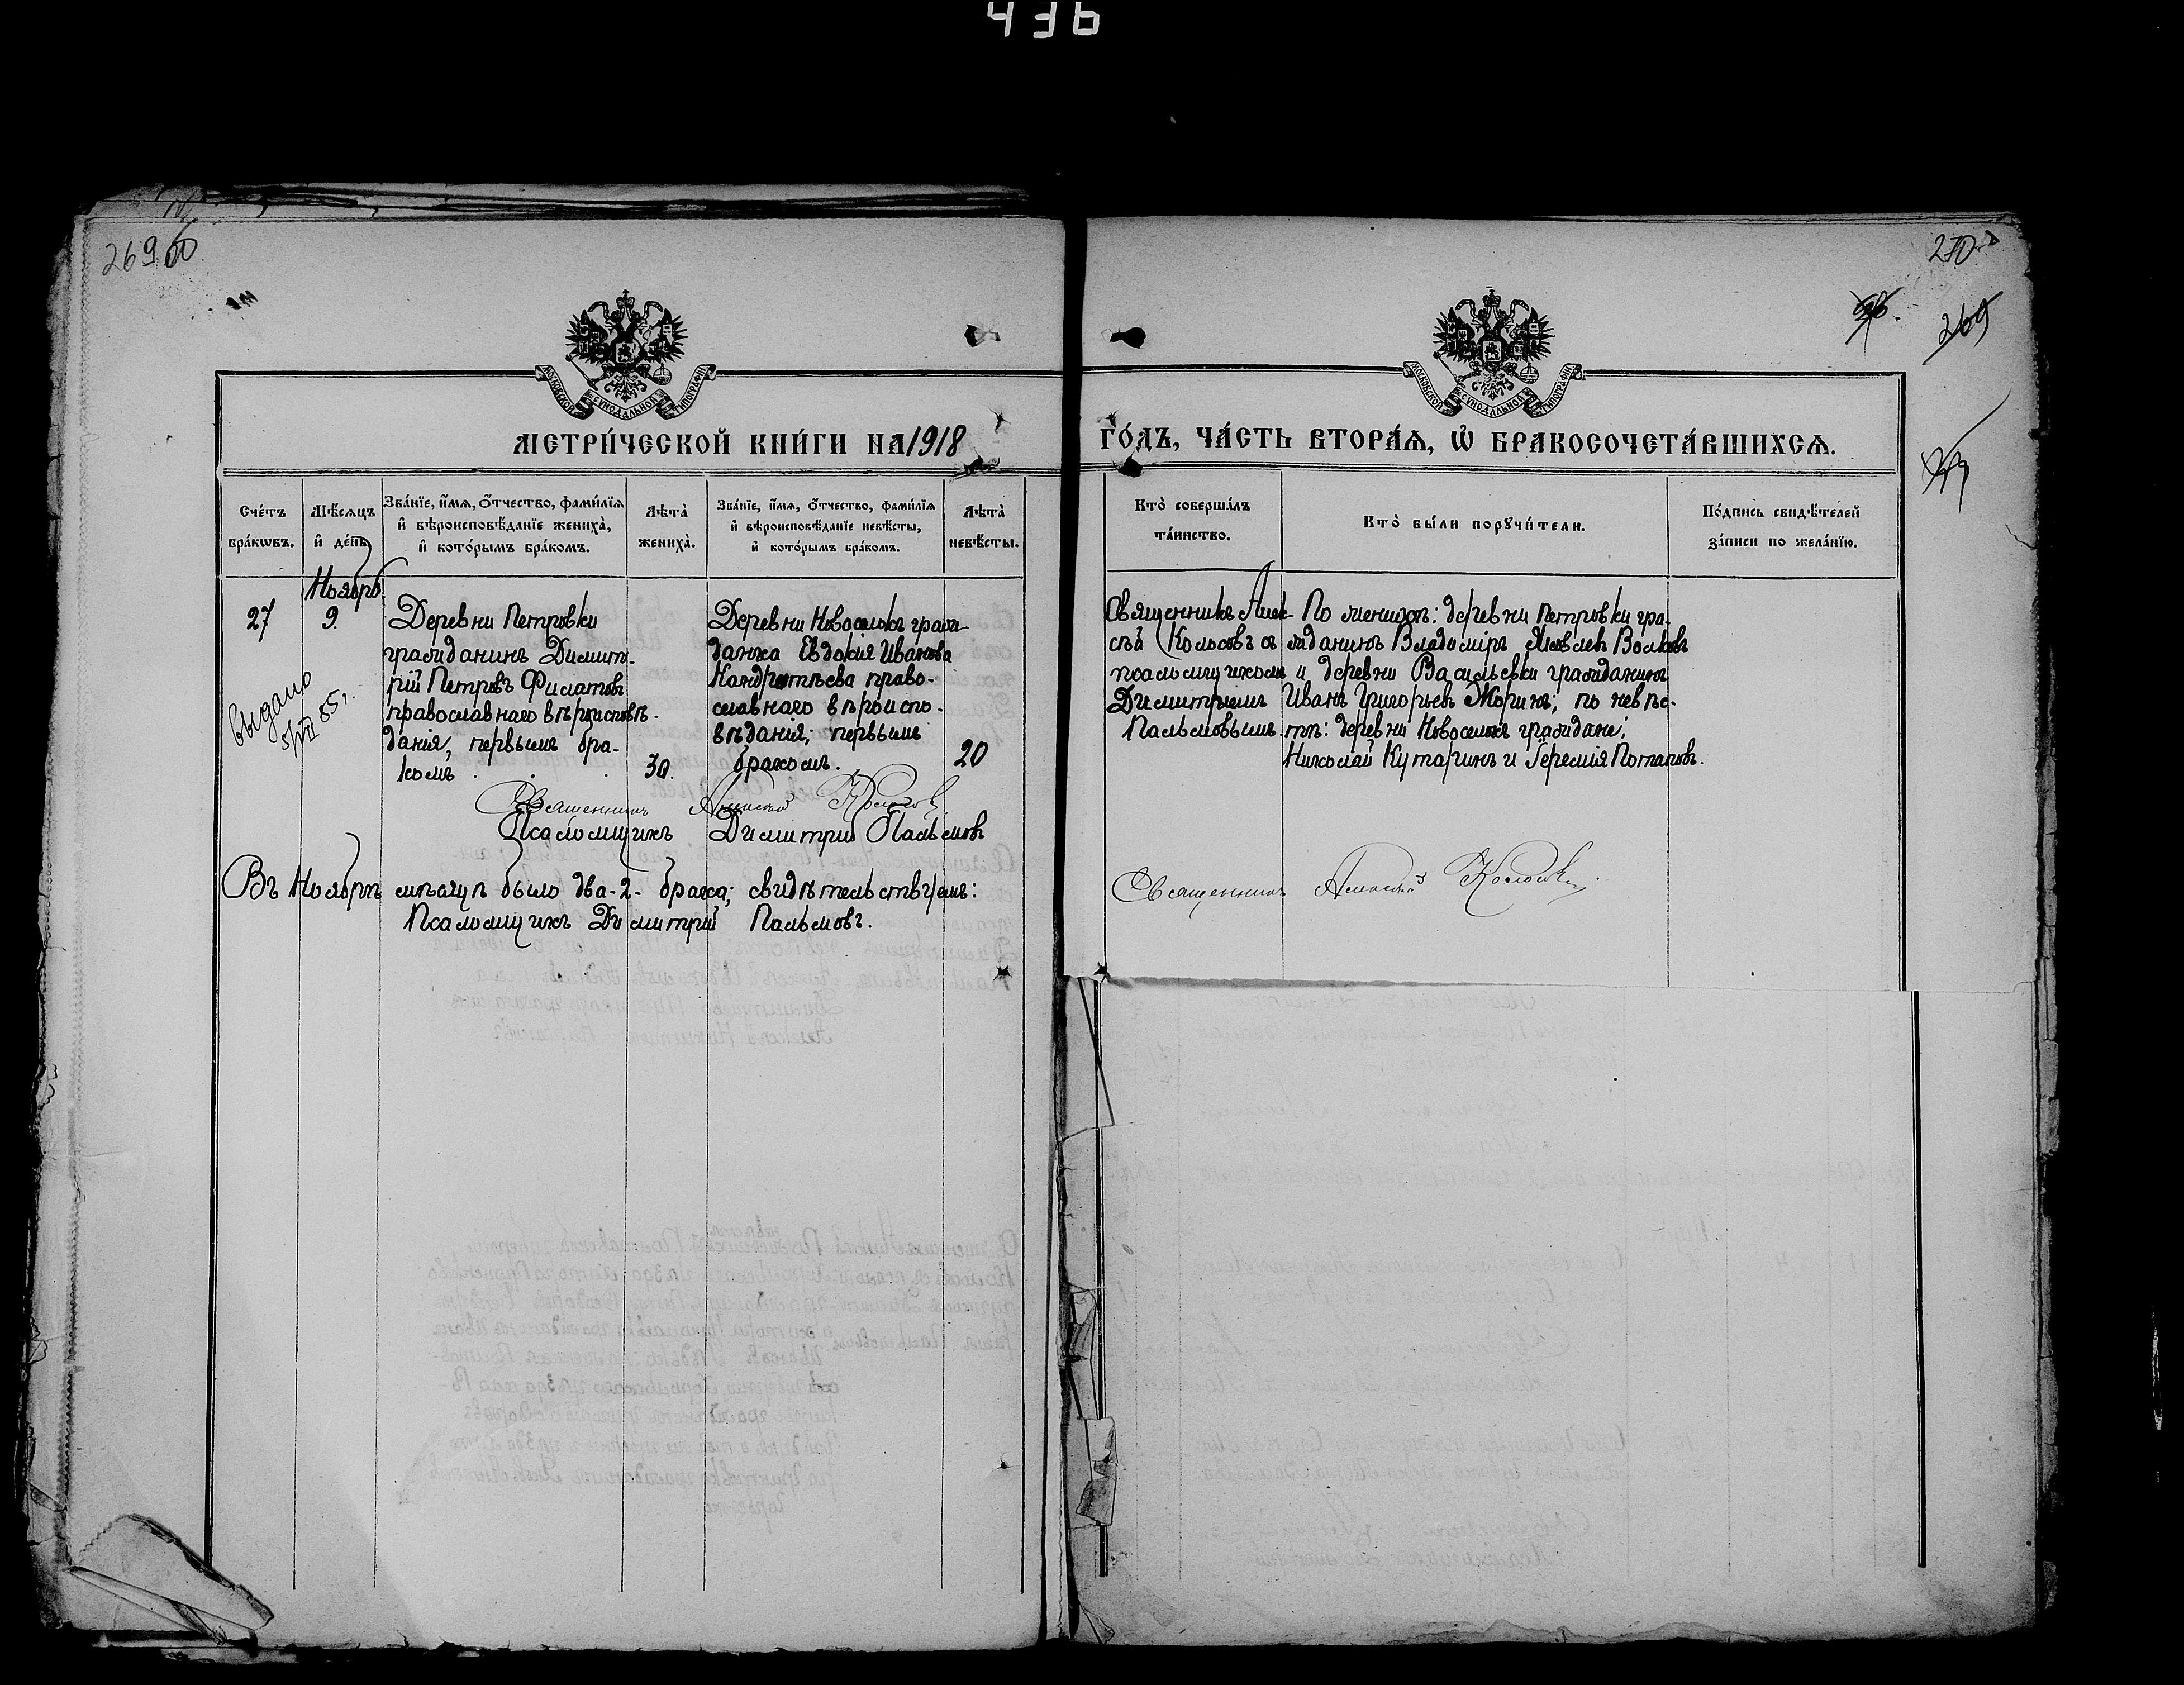 436
269 об
270
269
МОСКОВСКОЙ СѴНОДАЛЬНОЙ ТИПОГРАФІИ
МОСКОВСКОЙ СѴНОДАЛЬНОЙ ТИПОГРАФІИ
МЕТРИ́ЧЕСКОЙ КНИ́ГИ НА 1918
ГО́ДЪ, ЧА́СТЬ ВТОРА́Ѧ, Ѡ҆ БРАКОСОЧЕТА́ВШИХСѦ.
Сче́тъ бра́кѡвъ.
Мѣ́сѧцъ и҆ де́нь.
Зва́нїе, и҆́мѧ, ѻ҆́тчество, фами́лїѧ и҆ вѣроисповѣ́данїе жениха̀, и҆ кото́рымъ бра́комъ.
Лѣта̀ жениха̀.
Зва́нїе, и҆́мѧ, ѻ҆́тчество, фами́лїѧ и҆ вѣроисповѣ́данїе невѣ́сты, и҆ кото́рымъ бра́комъ.
Лѣта̀ невѣ́сты.
Кто̀ соверша́лъ та́инство.
Кто̀ бы́ли порꙋчи́тели.
По́дпись свидѣ́телей за́писи по жела́нїю.
Ноябрь
27
9.
Деревни Петровки
гражданинъ Димит-
рій Петровъ Филатовъ
православнаго вѣроисповѣ-
данія, первымъ бра-
комъ
30.
Деревни Новоселокъ граж-
данка Евдокія Иванова
Кандратьева право-
славнаго вѣроиспо-
вѣданія; первымъ
бракомъ.
20
Священникъ Алек-
сѣй Колосовъ съ
псаломщикомъ
Димитріемъ
Пальмовымъ.
По женихѣ: деревни Петровки гра-
жданинъ Владиміръ Яковлевъ Волковъ
и деревни Васильевки гражданинъ
Иванъ Григорьевъ Жоринъ; по невѣс-
тѣ: деревни Новоселокъ граждане:
Николай Кутаринъ и Іеремія Потаповъ.
выдано
5/VII 85 г.
Священникъ Алексѣй Колосовъ
Псаломщикъ Димитрій Пальмовъ
Въ Ноябрѣ мѣсяцѣ было два-2-брака; свидѣтельствуемъ:
Священникъ Алексѣй Колосовъ.
Псаломщикъ Димитрій Пальмовъ.